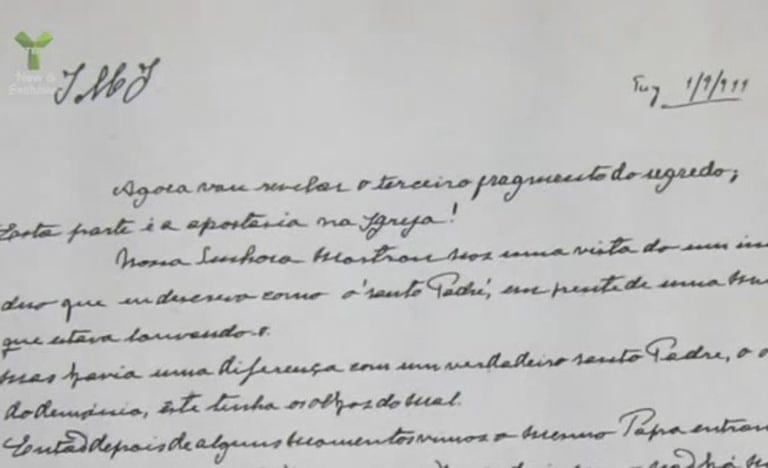 New &
Exclusive
J M J
Tuy 1/9/1944
Agora vou revelar o terceiro fragmento do segredo;
Esta parte é a apostasia na Igreja!
Nossa Senhora mostrou nos uma vista do um in
duo que eu descrevo como o 'santo Padre', em frente de uma mu
que estava louvando-o.
Mas havia uma diferença com um verdadeiro santo Padre, o o
do demónio, este tinha os olhos do mal.
Entaõ depois de alguns momentos vimos o mesmo Papa entran